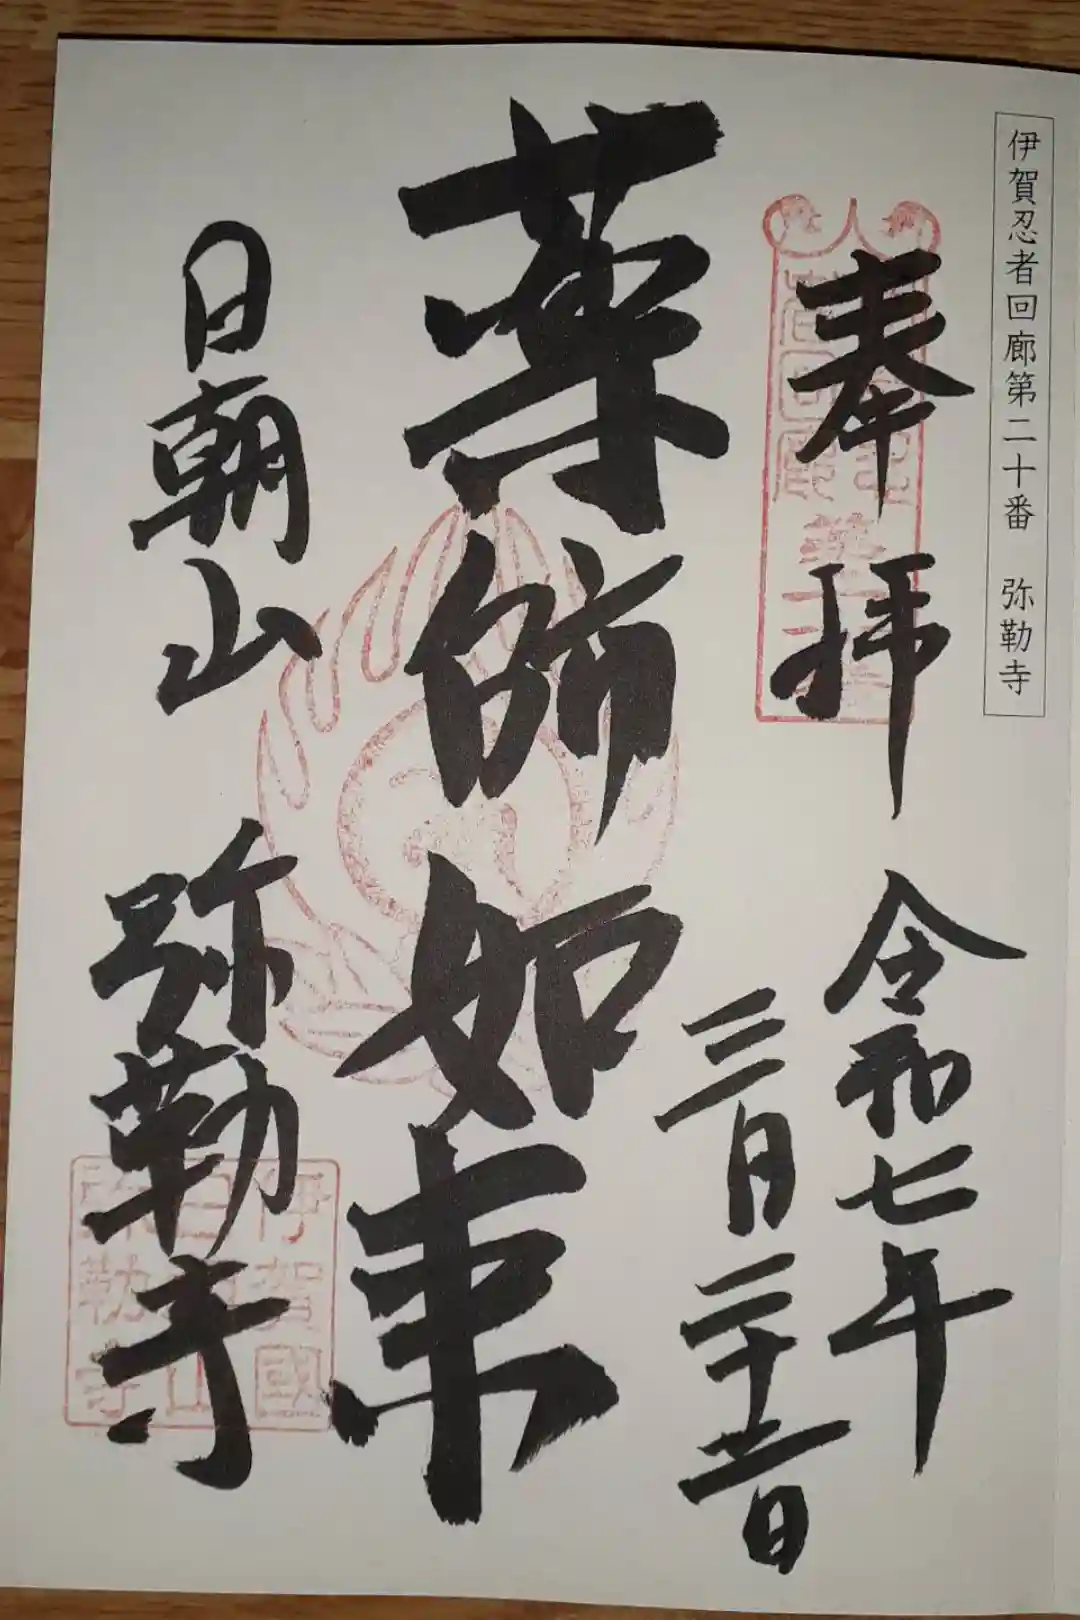 伊賀忍者回廊第二十番　弥勒寺
奉拝
令和七年
三月二十二日
薬師如来
日朝山
弥勒寺
伊賀國
日朝山
弥勒寺